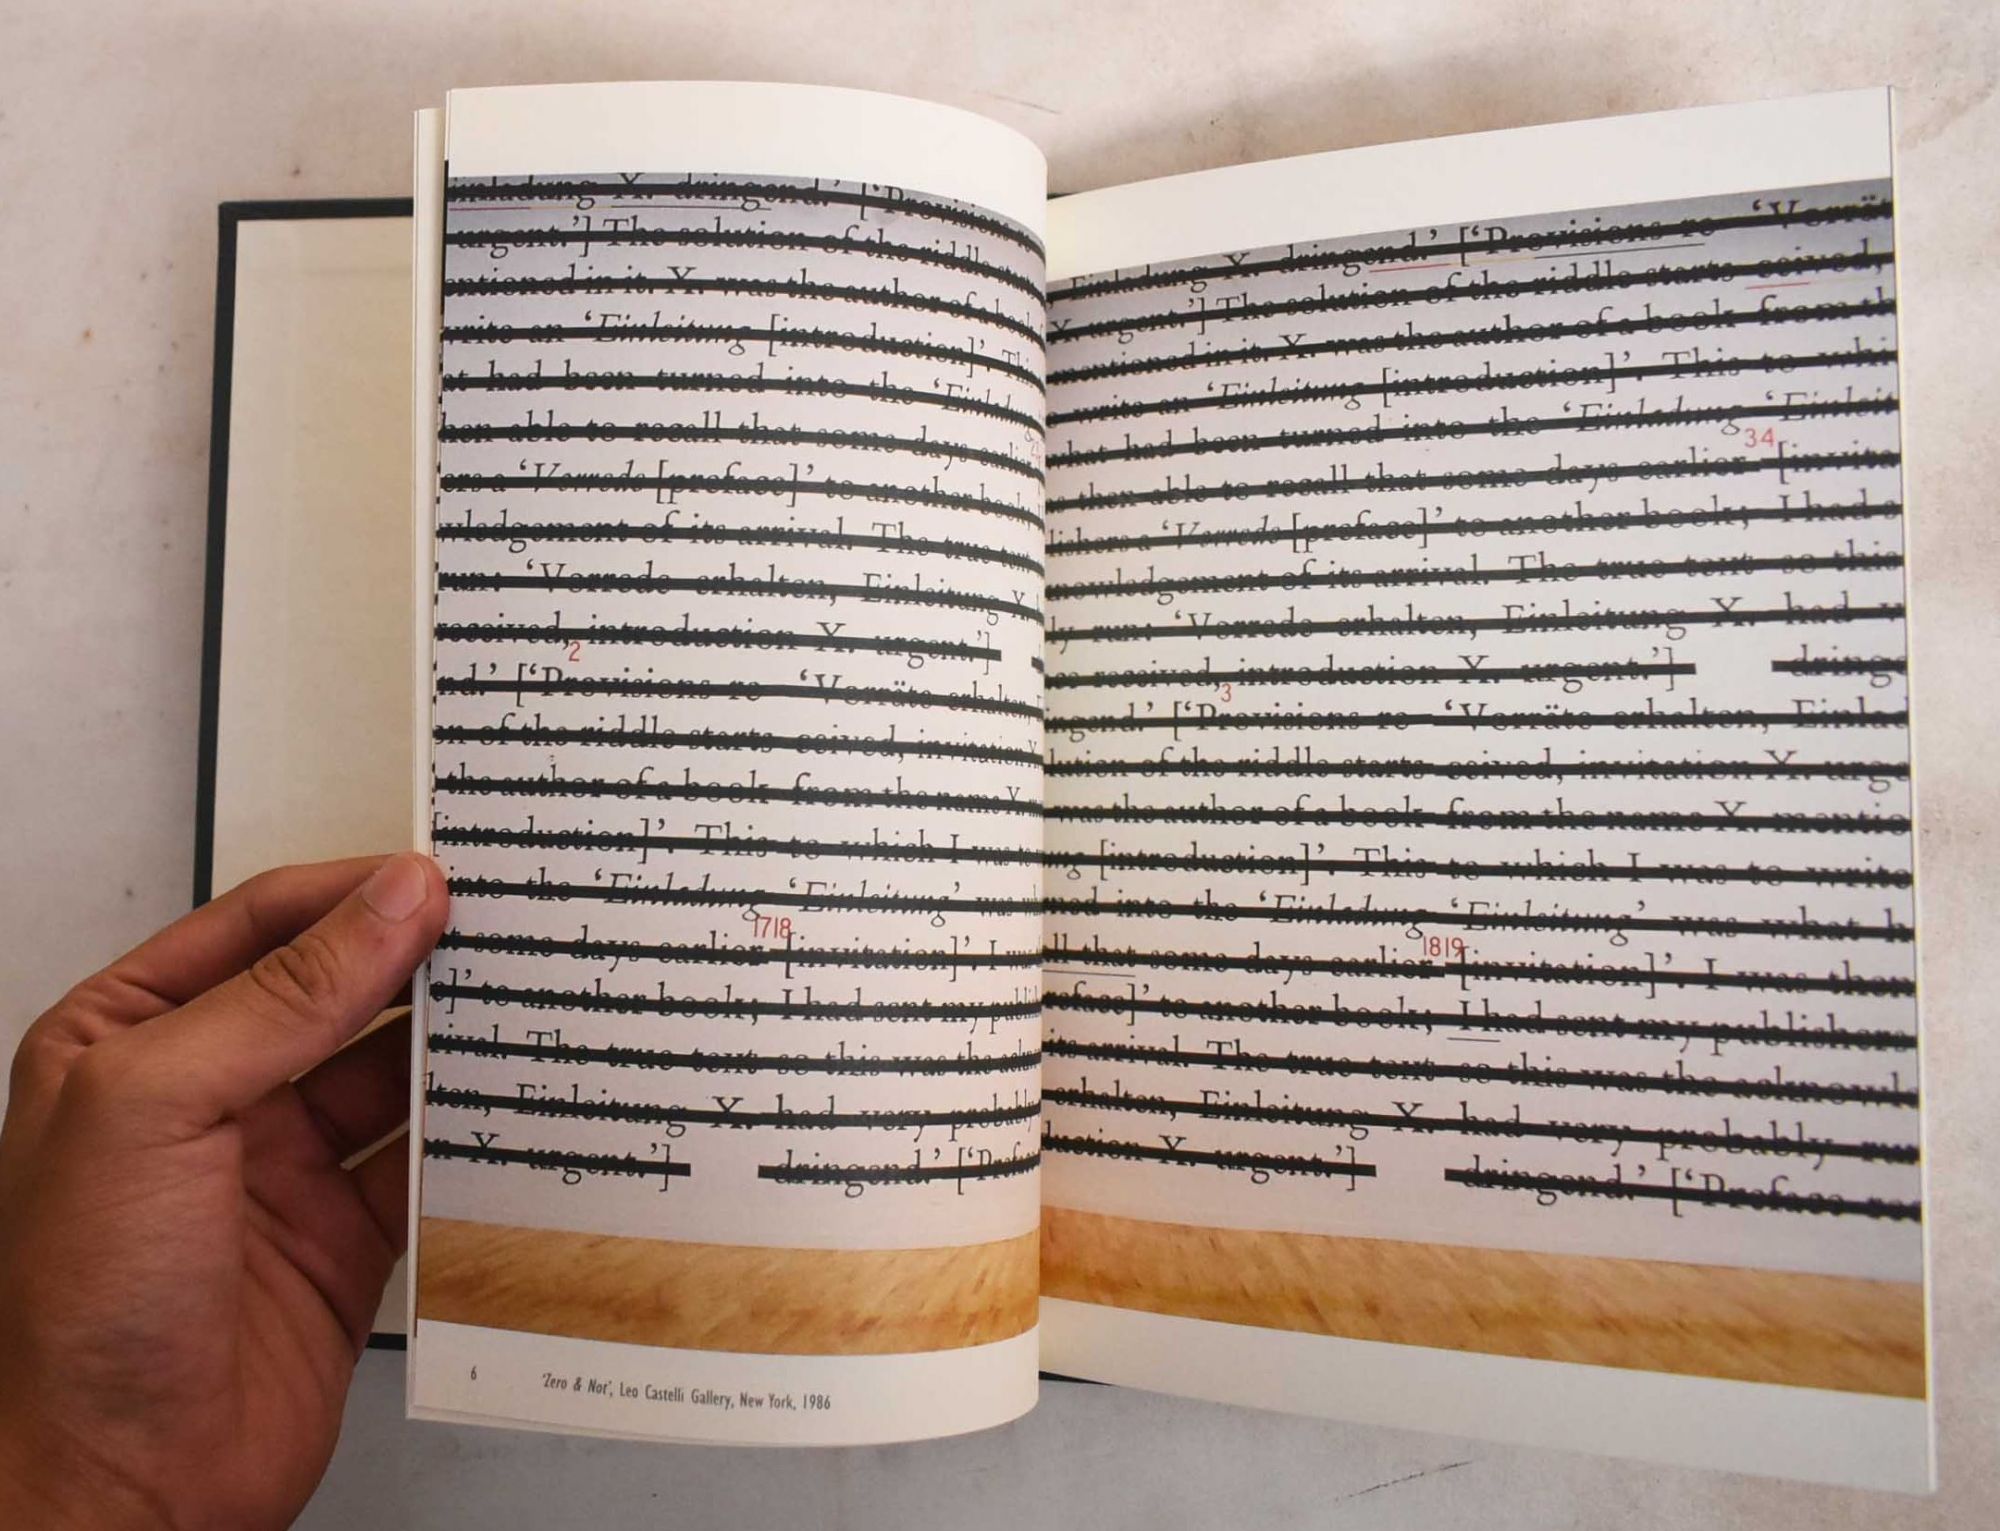 dringend.' ['Provisions
urgent.'] The solution of the riddle starts
mentioned in it. X. was the author of a book
write an 'Einleitung [introduction]'. This
at had been turned into the 'Einladung
hen able to recall that some days earlier
ers a 'Vorrede [preface]' to another book,
wledgement of its arrival. The true text
run: 'Vorrede erhalten, Einleitung X.
received, introduction X. urgent.']
2
nd.' ['Provisions re- 'Vorräte erhalten,
on of the riddle starts ceived, invitation X
the author of a book from the name X.
[introduction]'. This to which I was to
into the 'Einladung 'Einleitung' was
1718
t some days earlier [invitation]'. I was
e]' to another book; I had sent my publish
rival. The true text so this was the
lten, Einleitung X. had very probably
n X. urgent.'] dringend.' ['Preface
6 'Zero & Not', Leo Castelli Gallery, New York, 1986
Einladung X. dringend.' ['Provisions re- 'Vorrät
X. urgent.'] The solution of the riddle starts ceived,
mentioned in it. X. was the author of a book from th
write an 'Einleitung [introduction]'. This to whi
hat had been turned into the 'Einladung 'Einleit
34
then able to recall that some days earlier [invita
lishers a 'Vorrede [preface]' to another book; I had s
nowledgement of its arrival. The true text so this
ly run: 'Vorrede erhalten, Einleitung X. had v
received, introduction X. urgent.'] dringe
3
ingend.' ['Provisions re- 'Vorräte erhalten, Einlad
lution of the riddle starts ceived, invitation X. urge
was the author of a book from the name X. mentio
ung [introduction]'. This to which I was to write
ned into the 'Einladung 'Einleitung' was what h
1819
ll that some days earlier [invitation]'. I was then
eface]' to another book; I had sent my publishers
its arrival. The true text so this was the acknowl
erhalten, Einleitung X. had very probably run
duction X. urgent.'] dringend.' ['Preface re